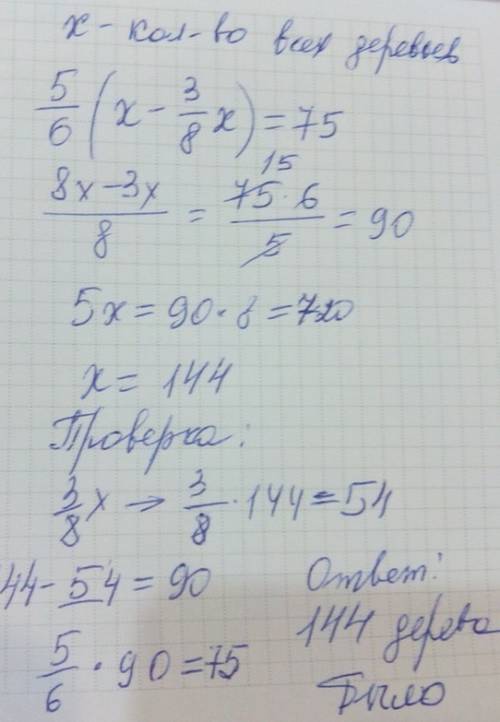 x - кол-во всех деревьев
5/6 (x - 3/8 x) = 75
(8x - 3x)/8 = (75 · 6)/5 = 90
15
5x = 90 · 8 = 720
x = 144
Проверка:
3/8 x → 3/8 · 144 = 54
44 - 54 = 90
5/6 · 90 = 75
Ответ:
144 дерева
было